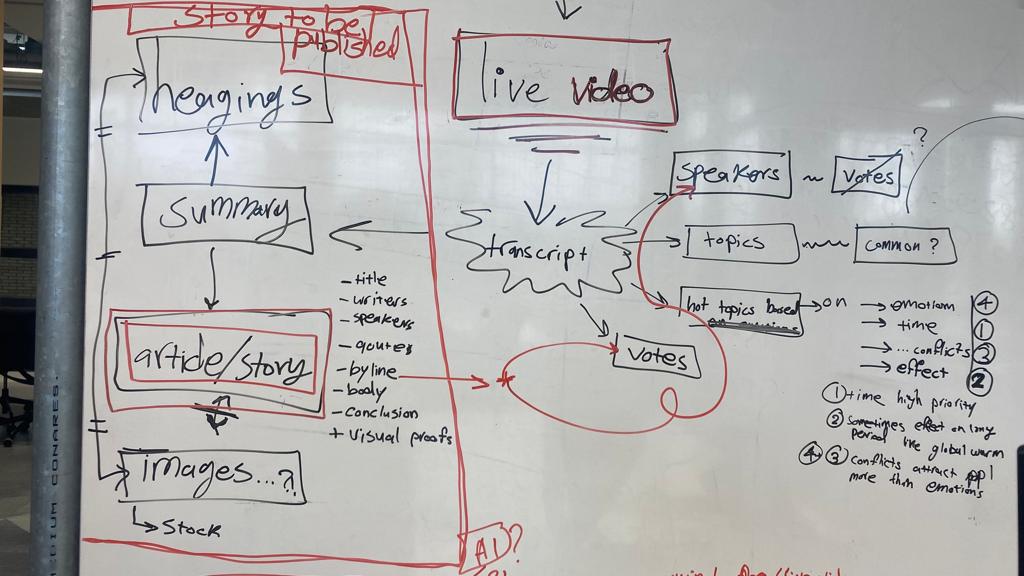 Story to be
published
heagings
summary
article/story
images...?
Stock
- title
- writers
- speakers
- qoutes
- byline
- body
- conclusion
+ visual proofs
AI?
live video
transcript
speakers ~ votes
?
topics
common?
hot topics based
on
emotion 4
time 1
... conflicts 3
effect 2
votes
1 time high priority
2 sometimes effect on long
period like global warm
4 3 conflicts attract ppl
more than emotions
MEDIUM CONARES